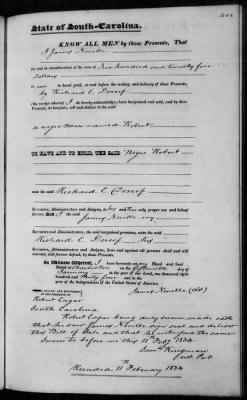 State of South-Carolina.
KNOW ALL MEN by these Presents, That
I James Neville
for and in consideration of the sum of Five hundred and twenty five
Dollars
to me in hand paid, at and before the sealing and delivery of these Presents,
by Richard E. Dereef
(the receipt whereof I do hereby acknowledge) have bargained and sold, and by these
Presents, do bargain, sell and deliver to the said
a negro Man named Robert
TO HAVE AND TO HOLD, THE SAID Negro Robert
unto the said Richard E Dereef
Executors, Administrators and Assigns, to his and their only proper use and behoof
forever. And I the said
James Neville my
Executors, Administrators, the said bargained premises, unto the said
Richard E. Dereef his
Executors, Administrators and Assigns, from and against all persons shall and will
warrant, and forever defend, by these Presents.
In Witness Whereof, I have hereunto set my Hand and Seal
Dated at Charleston on the
January in the year of our Lord, one thousand eight
hundred and Thirty and in the
year of the Independence of the United States of America.
James Neville (LS)
SEALED, AND DELIVERED
IN THE PRESENCE OF
Robert Eagar
South Carolina
Robert Eagar being duly sworn made oath
that he saw James Neville sign seal and deliver
this Bill of Sale and that he witnessed the same
Sworn to before me this 11 Feby 1834
Kingman
Recorded 11 February 1834